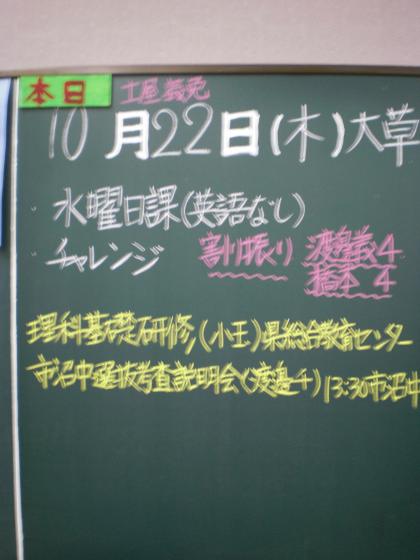 本日 土屋義免
10月22日(木)大草
水曜日課(英語なし)
チャレンジ 割り振り 渡邉義4
橋本 4
理科基礎研修,(小玉)県総合教育センター
市沼中選抜考査説明会(渡邉千)13:30市沼中